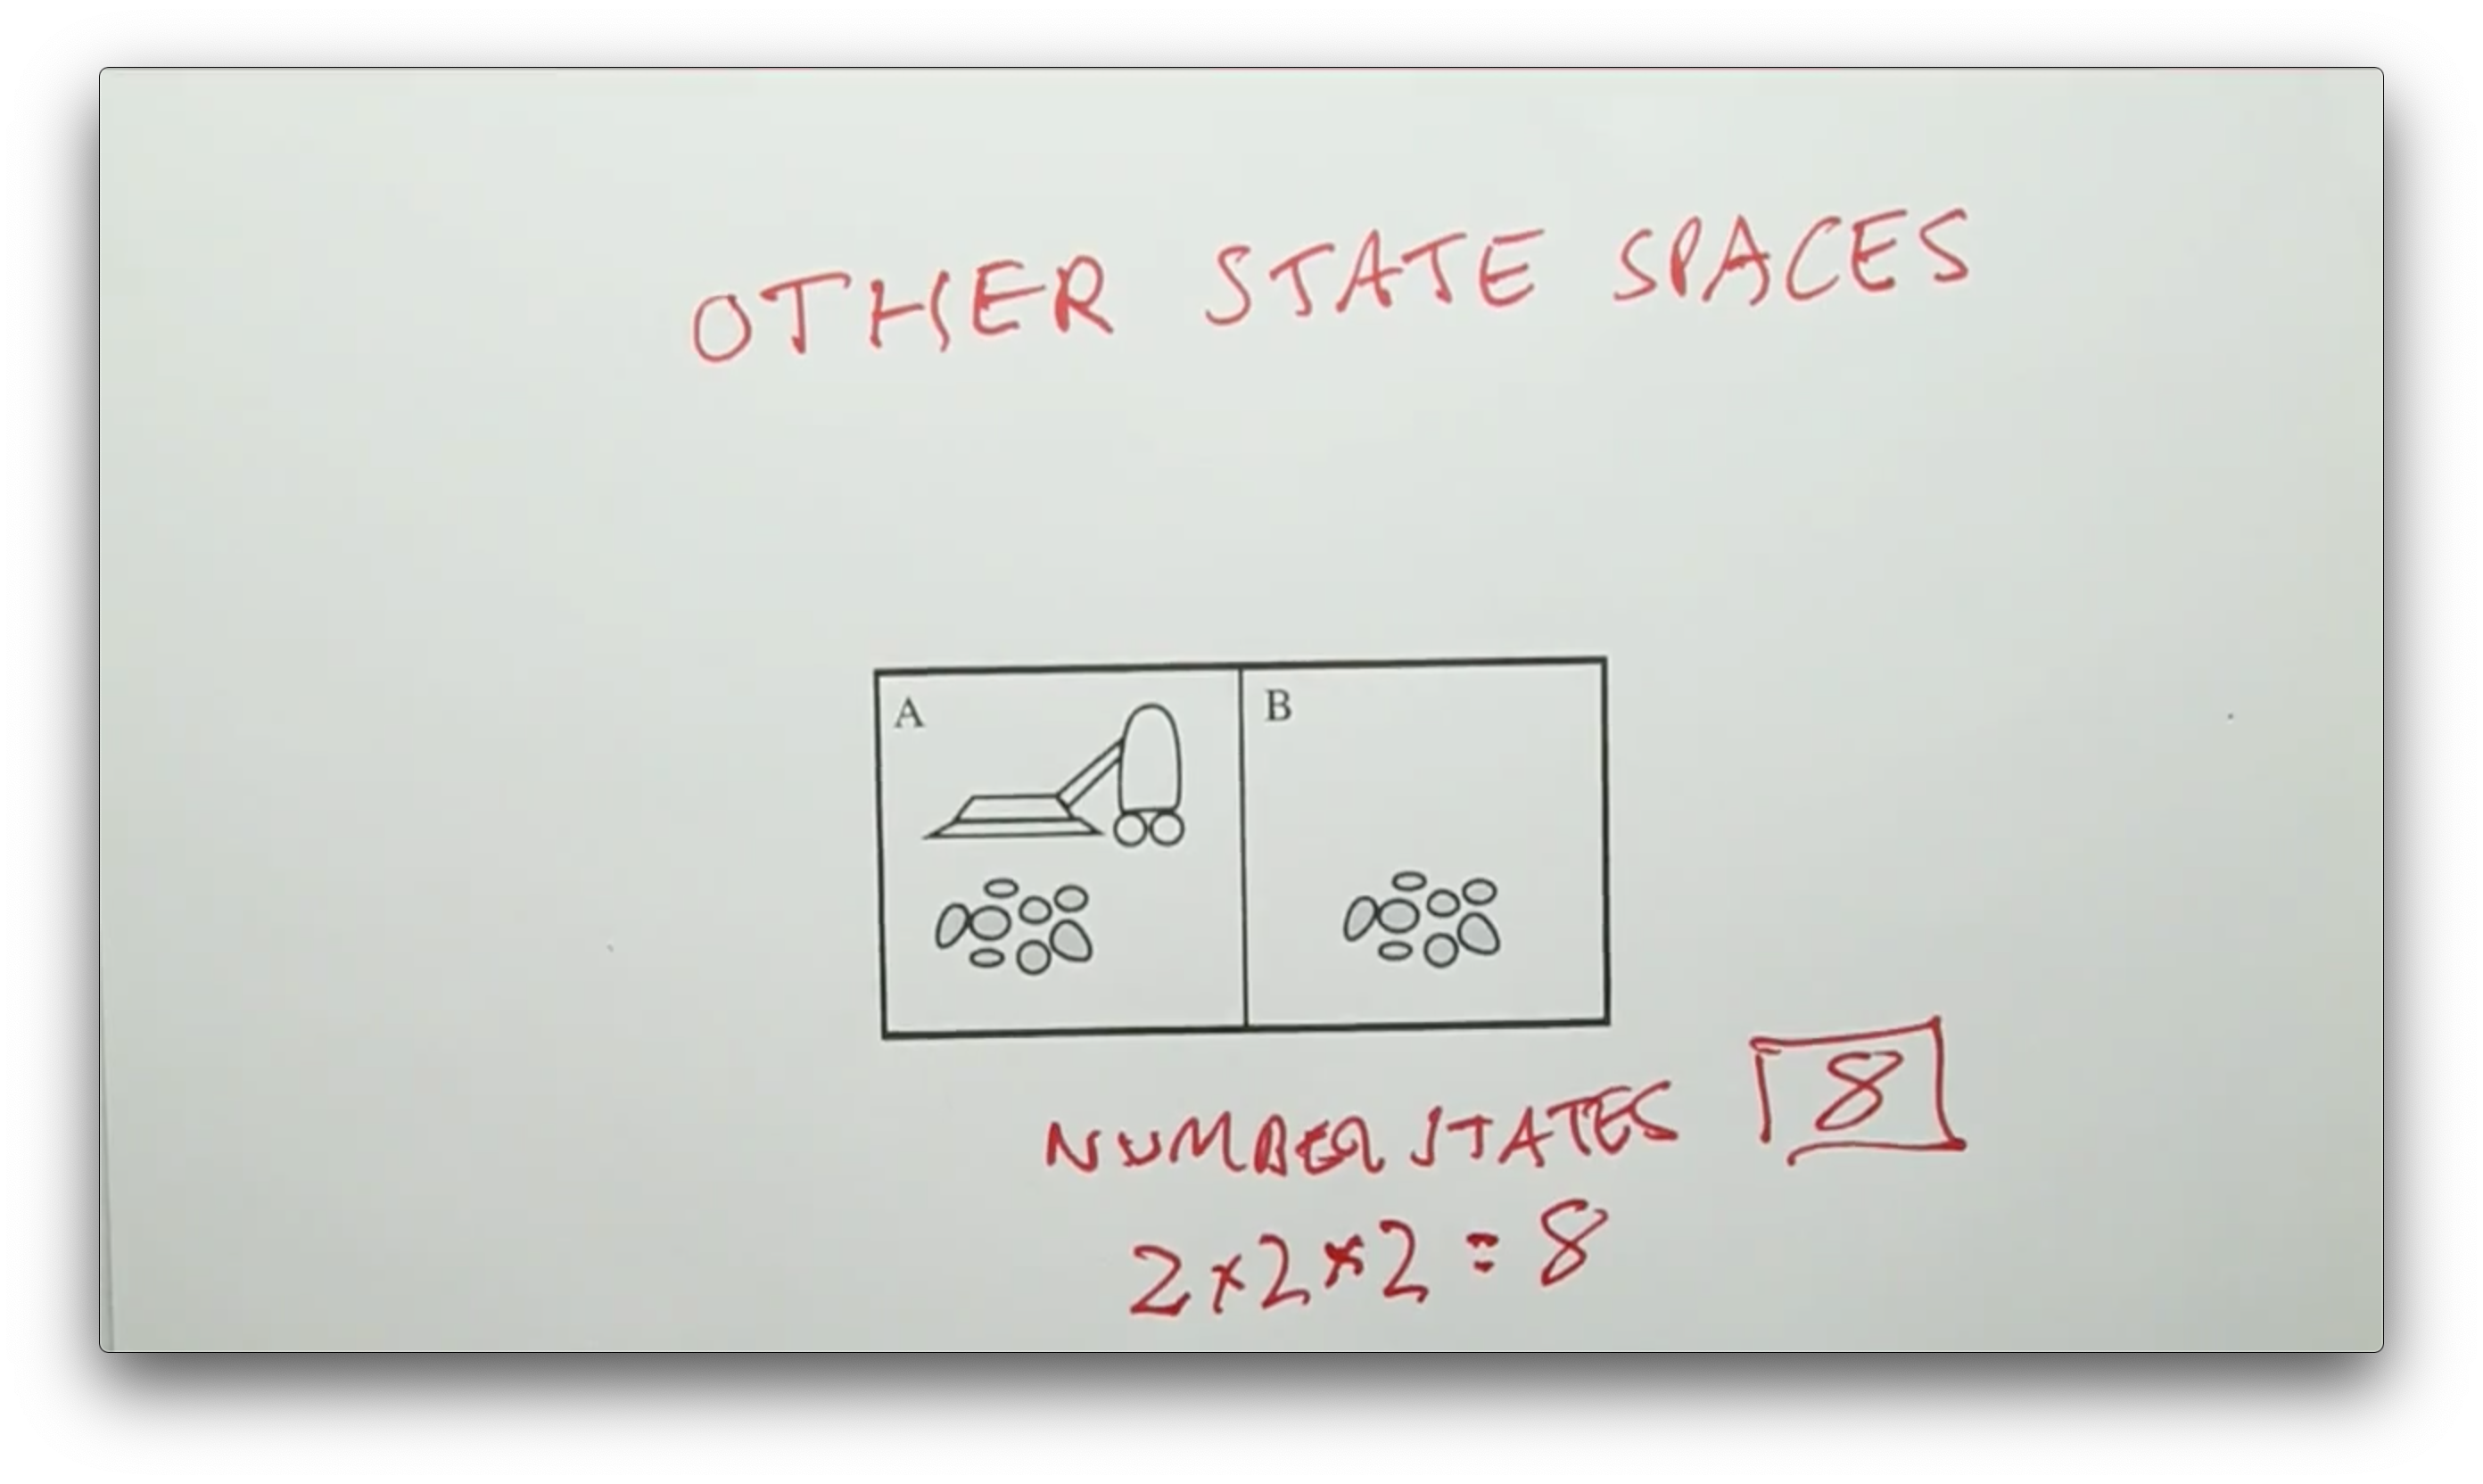 OTHER STATE SPACES
A
B
NUMBER STATES 8
2x2x2 = 8